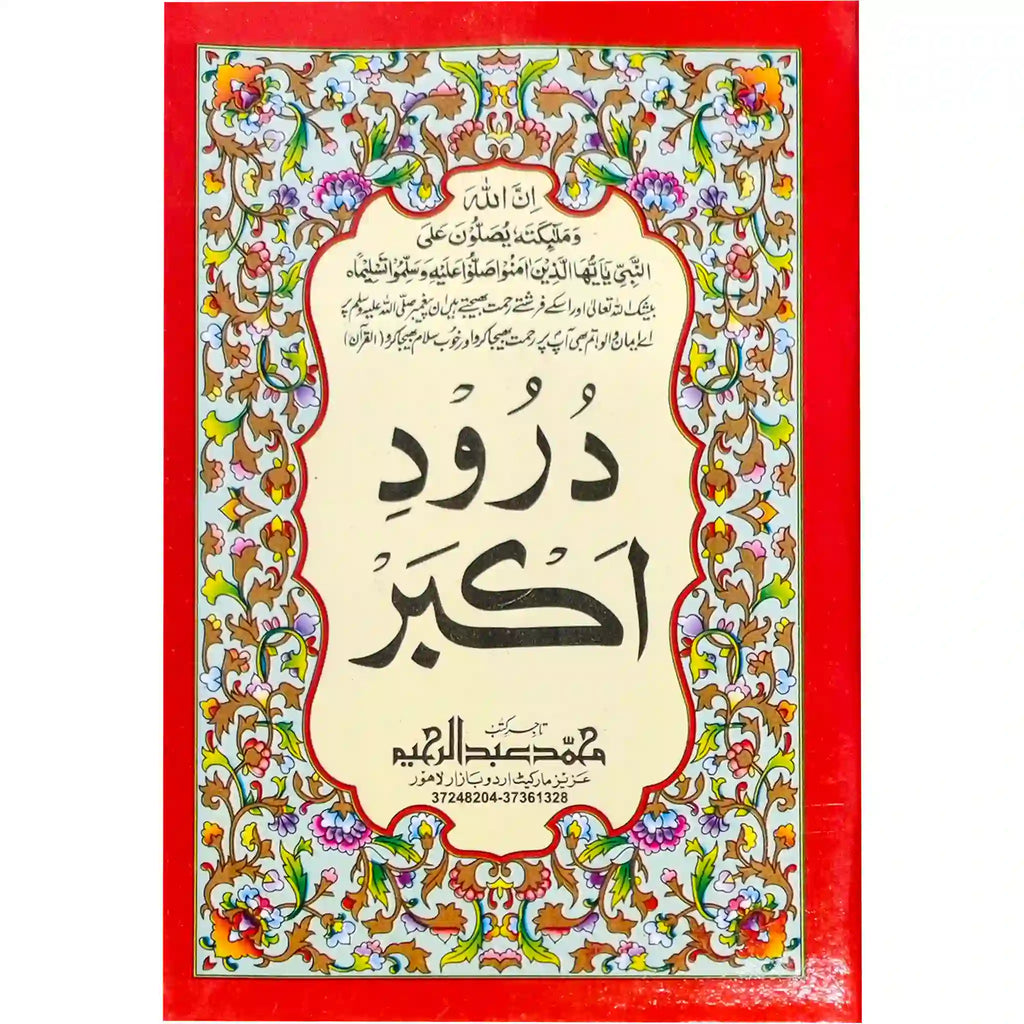 اِنَّ اللّٰهَ
وَمَلٰٓئِكَتَهٗ يُصَلُّوْنَ عَلَى
النَّبِىِّ يٰاَيُّهَا الَّذِيْنَ اٰمَنُوْا صَلُّوْا عَلَيْهِ وَسَلِّمُوْا تَسْلِيْمًاه
بیشک اللہ تعالیٰ اور اسکے فرشتے رحمت بھیجتے ہیں ان پیغمبر صلی اللہ علیہ وسلم پر
اے ایمان والو تم بھی آپؐ پر رحمت بھیجا کرو اور خوب سلام بھیجا کرو (القرآن)
دُرُوْدِ
اَكْبَرْ
تاجر کتب
محمّد عبد الرحیم
عزیز مارکیٹ اردو بازار لاھور
37248204-37361328